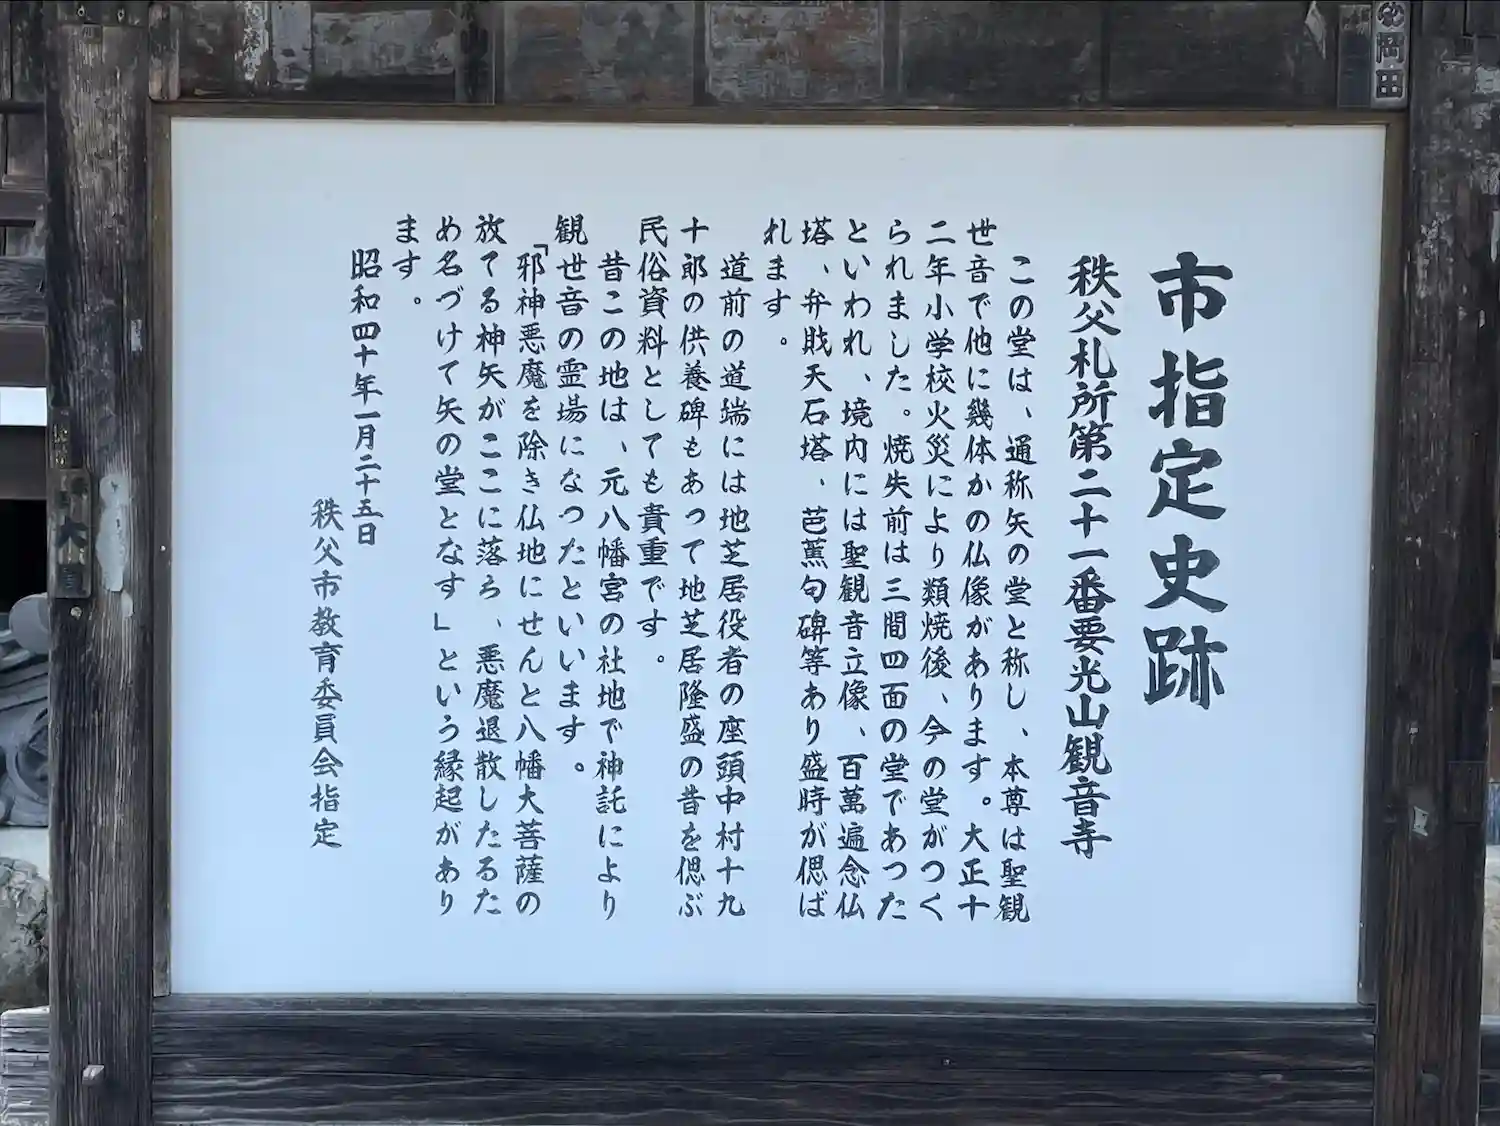 市指定史跡
秩父札所第二十一番要光山観音寺
この堂は、通称矢の堂と称し、本尊は聖観
世音で他に幾体かの仏像があります。大正十
二年小学校火災により類焼後、今の堂がつく
られました。焼失前は三間四面の堂であつた
といわれ、境内には聖観音立像、百萬遍念仏
塔、弁戝天石塔、芭蕉句碑等あり盛時が偲ば
れます。
道前の道端には地芝居役者の座頭中村十九
十郎の供養碑もあって地芝居隆盛の昔を偲ぶ
民俗資料としても貴重です。
昔この地は、元八幡宮の社地で神託により
観世音の霊場になつたといいます。
「邪神悪魔を除き仏地にせんと八幡大菩薩の
放てる神矢がここに落ち、悪魔退散したるた
め名づけて矢の堂となす」という縁起があり
ます。
昭和四十年一月二十五日
秩父市教育委員会指定
岡田
大